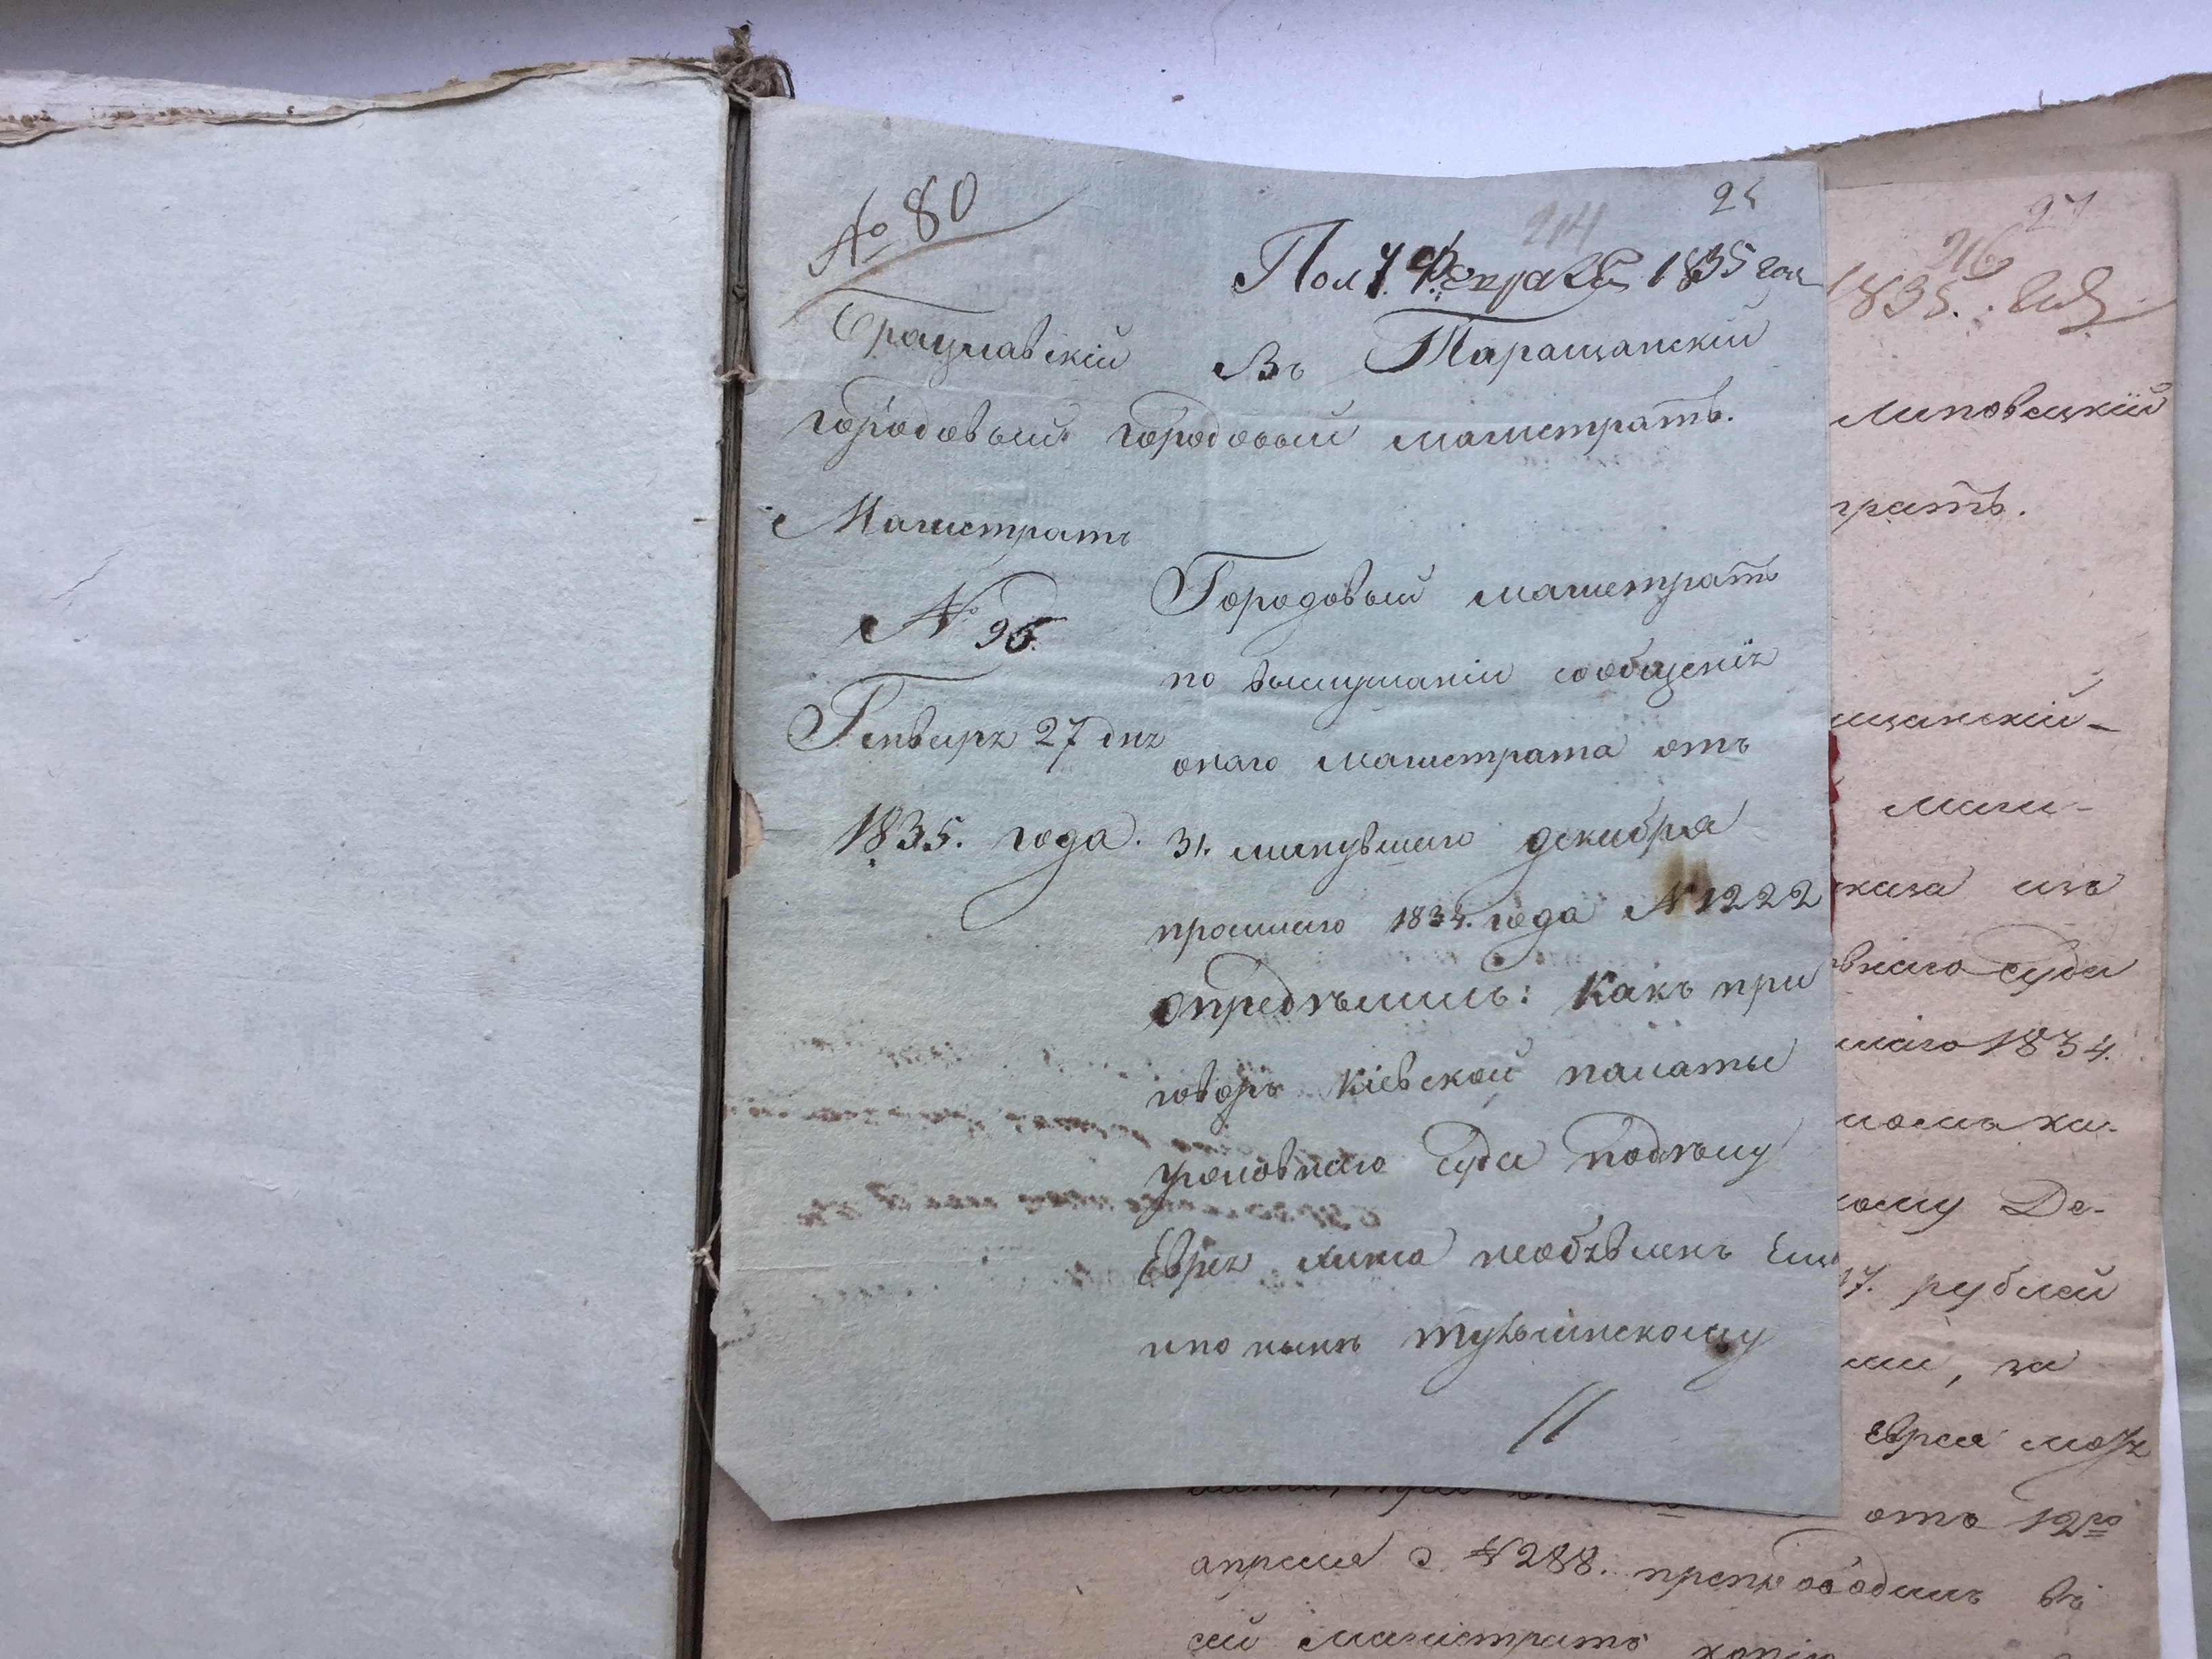 № 80
24
214
Пол 7. Февраля 1835 года
Брацлавскій
городовый
Магистратъ
№ 96.
Генваря 27 дня
1835. года.
Въ Таращанскій
городовый магистратъ.
Городовый магистратъ
по выслушаніи сообщенія
онаго магистрата отъ
31. минувшаго декабря
прошлаго 1834. года № 1222
опредѣлилъ: Какъ при
говоръ Кіевской палаты
уголовнаго суда подѣлу
Еврея необъявленъ Еще
ипо нынѣ тульчинскому
27
216
1835.
Липовецкій
тратъ.
щанскій
маги-
каза изъ
внаго суда
лаго 1834.
кому Де-
27. рублей
ми, за
Еврея
отъ 12го
апреля с № 288. препроводилъ въ
сей магистратъ копію